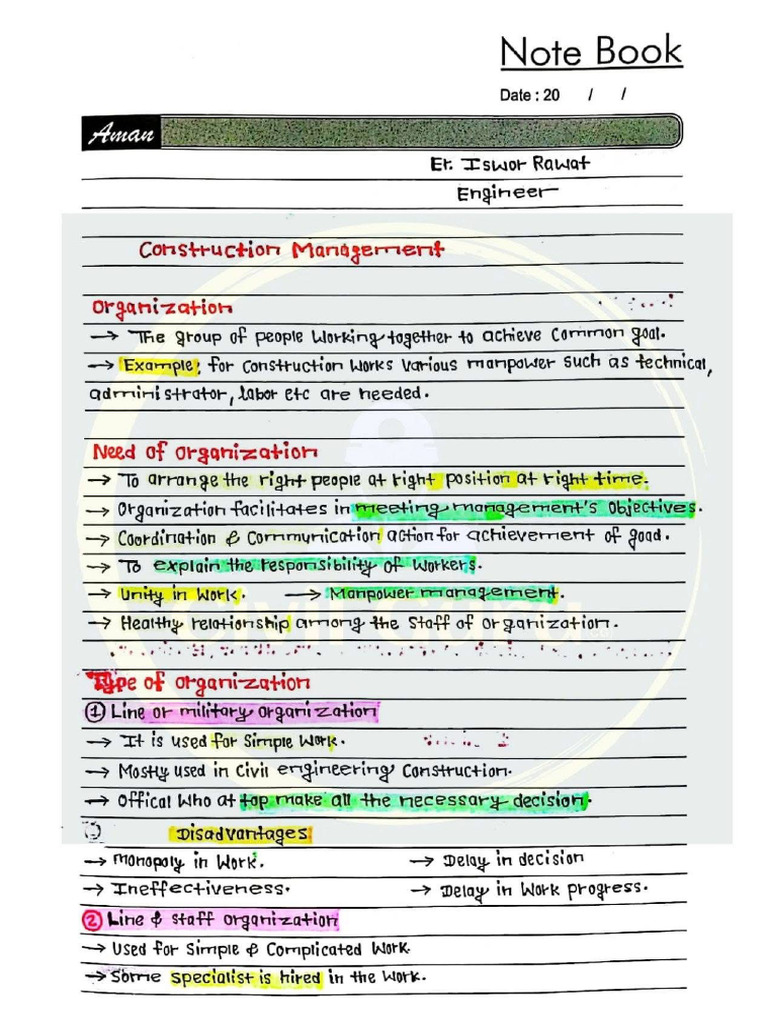 Note Book
Date : 20 / /
Aman
Er. Iswor Rawat
Engineer
Construction Management
Organization
→ The group of people working together to achieve common goal.
→ Example; for construction works various manpower such as technical,
administrator, labor etc are needed.
Need of organization
→ To arrange the right people at right position at right time.
→ Organization facilitates in meeting management's objectives.
→ Coordination & Communication action for achievement of goad.
→ To explain the responsibility of workers.
→ Unity in work. → Manpower management.
→ Healthy relationship among the staff of organization.
Civil Guru
Type of organization
① Line or military organization
→ It is used for simple work.
→ Mostly used in civil engineering construction.
→ Offical who at top make all the necessary decision.
Disadvantages
→ Monopoly in work. → Delay in decision
→ Ineffectiveness. → Delay in work progress.
② Line & staff organization
→ Used for simple & complicated work.
→ Some specialist is hired in the work.